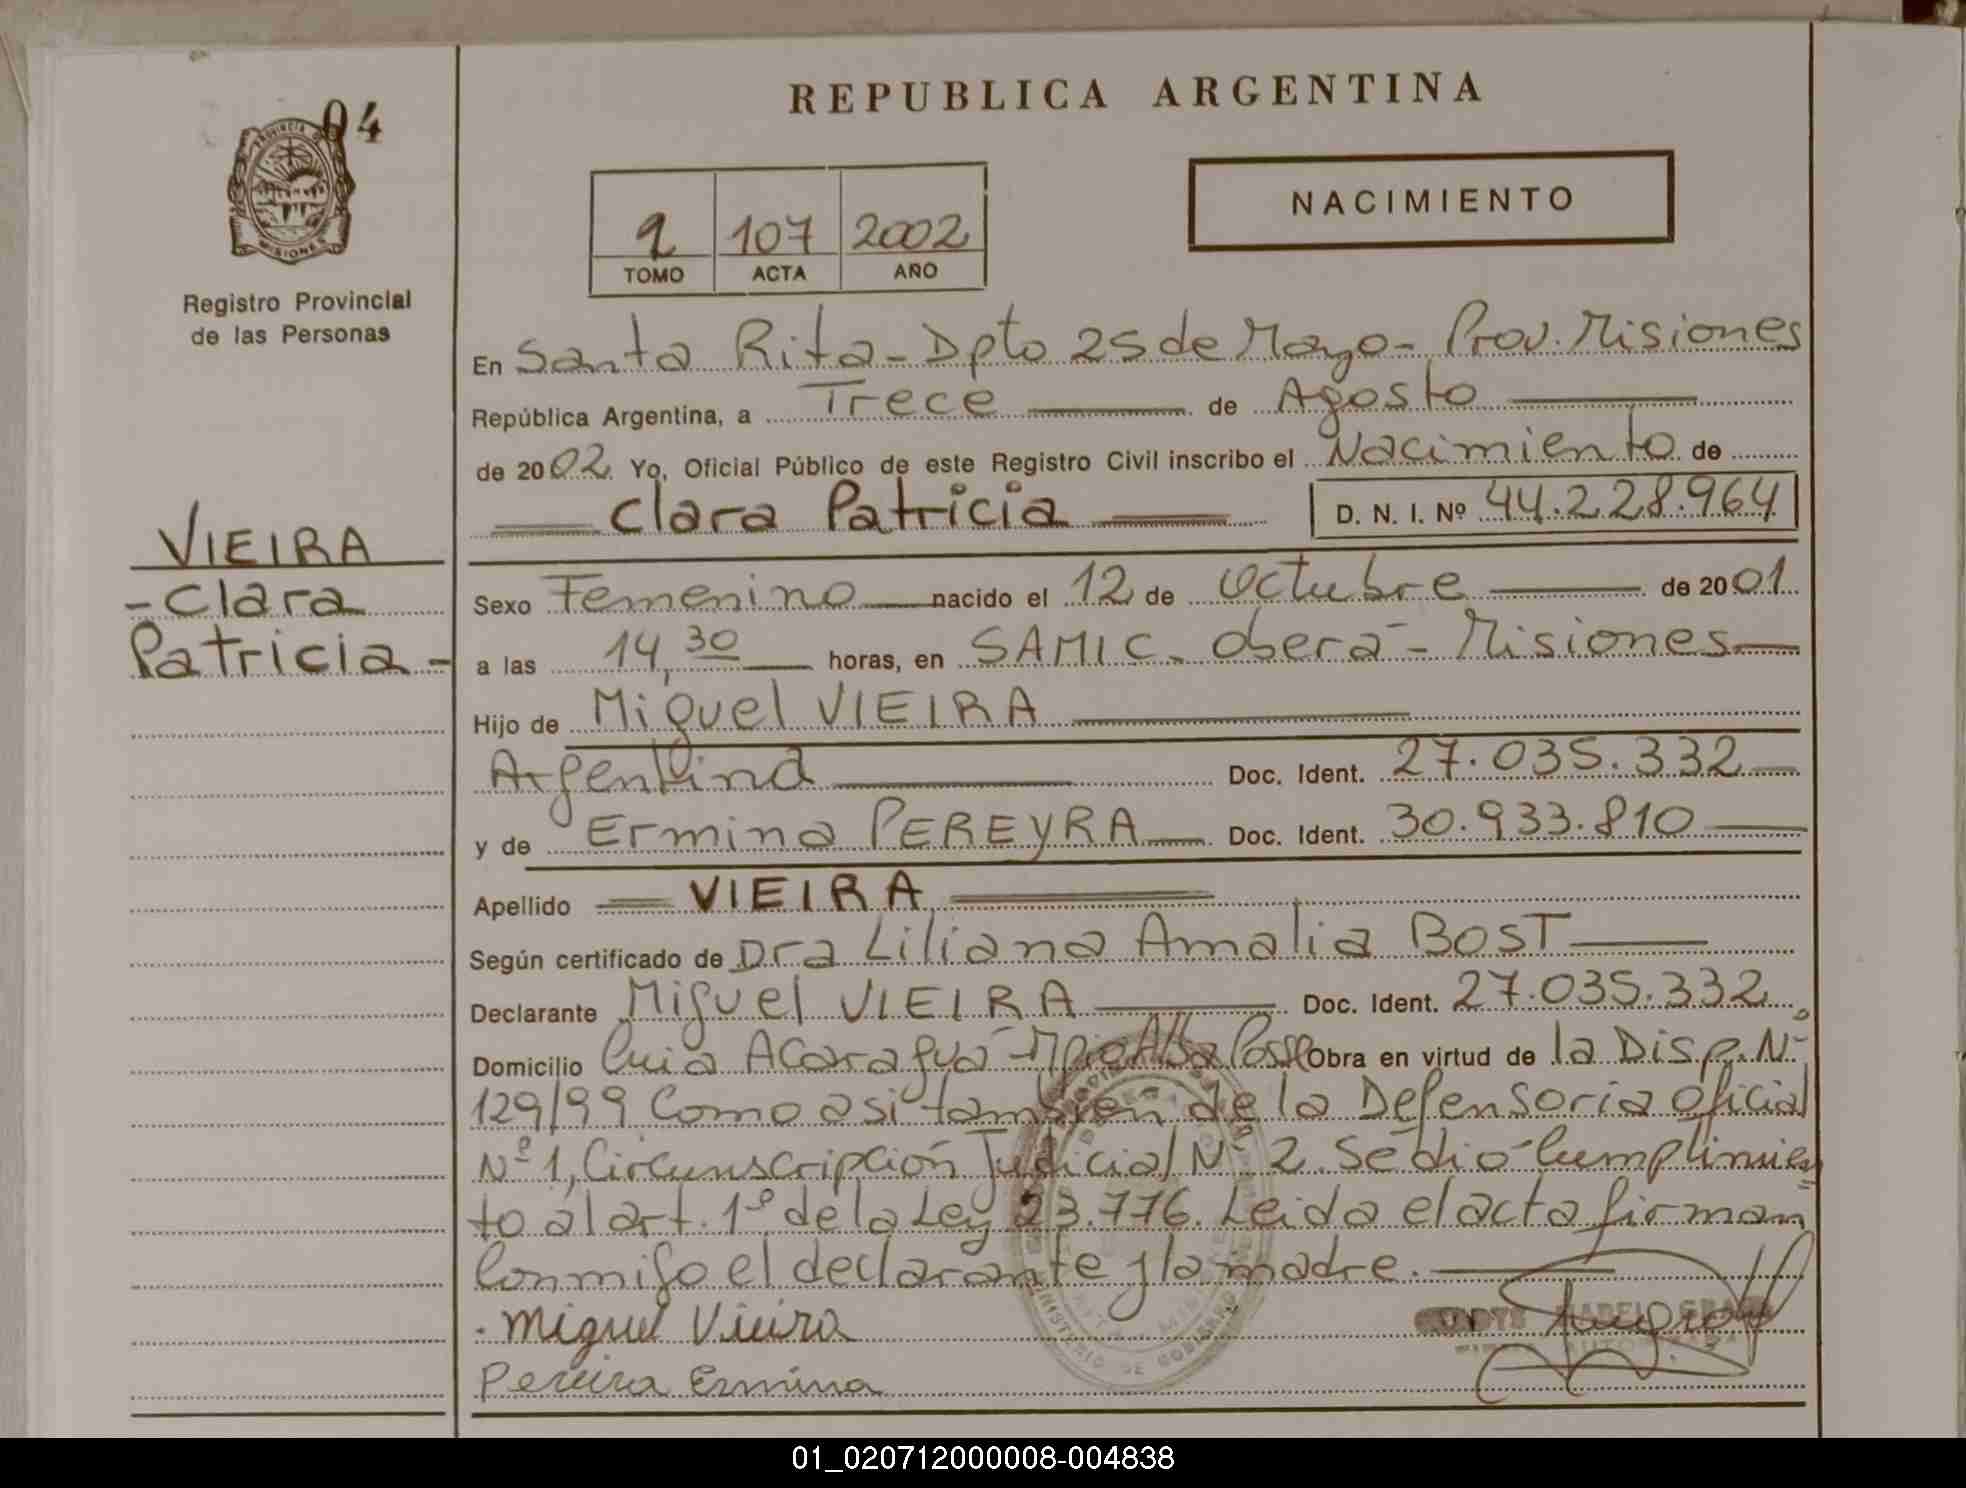 04
PROVINCIA DE
MISIONES
Registro Provincial
de las Personas
VIEIRA
- Clara
Patricia -
REPUBLICA ARGENTINA
2 107 2002
TOMO ACTA AÑO
NACIMIENTO
En Santa Rita - Dpto 25 de Mayo - Prov. Misiones
República Argentina, a Trece de Agosto
de 2002 Yo, Oficial Público de este Registro Civil inscribo el Nacimiento de
Clara Patricia D. N. I. Nº 44.228.964
Sexo Femenino nacido el 12 de Octubre de 2001
a las 14,30 horas, en SAMIC. Oberá - Misiones
Hijo de Miguel VIEIRA
Argentina Doc. Ident. 27.035.332
y de Ermina PEREYRA Doc. Ident. 30.933.810
Apellido VIEIRA
Según certificado de Dra Liliana Amalia BOST
Declarante Miguel VIEIRA Doc. Ident. 27.035.332
Domicilio Cnia Acaragua - Mpio Alba Posse Obra en virtud de la Disp. Nº
129/99 Como asi tambien de la Defensoria Oficial
Nº 1, Circunscripción Judicial Nº 2. Se dio Cumplimien
to al art. 1º de la Ley 23.776. Leida el acta firman
Conmigo el declarante y la madre.
Miguel Vieira
Pereira Ermina
MINISTERIO DE GOBIERNO
01_020712000008-004838